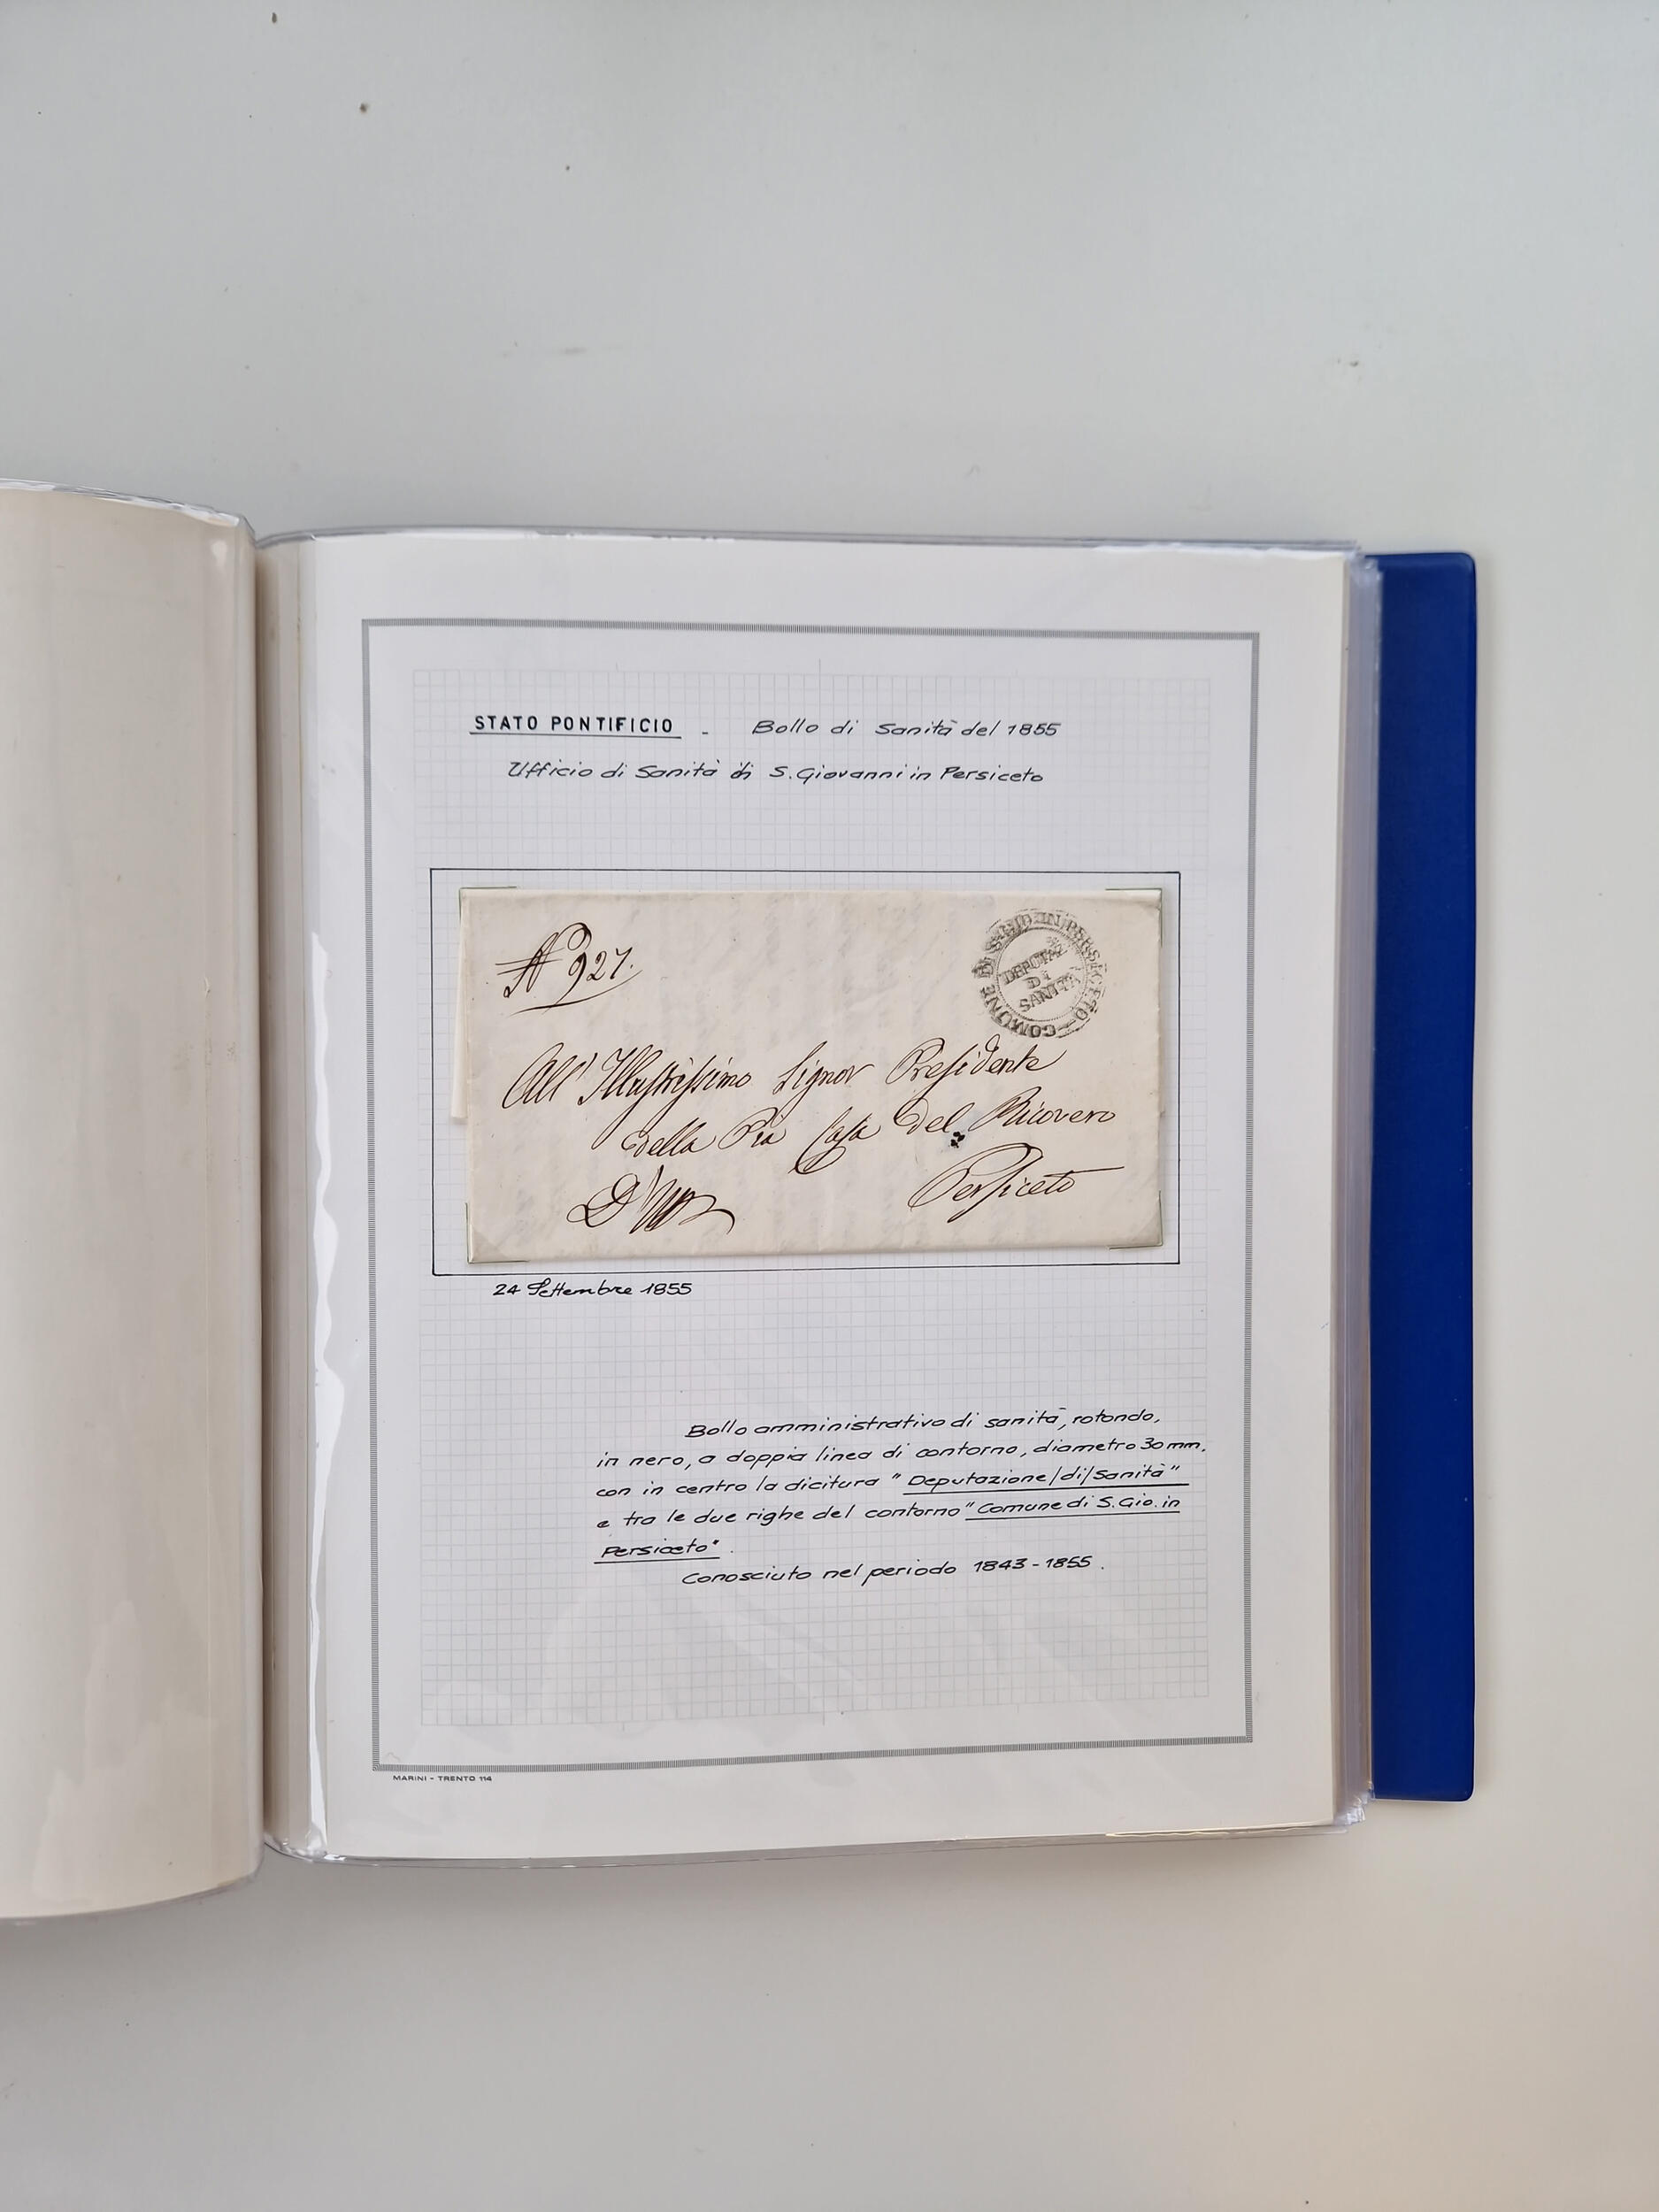 STATO PONTIFICIO - Bollo di Sanità del 1855
Ufficio di Sanità di S. Giovanni in Persiceto
N 927.
COMUNE DI S. GIO. IN PERSICETO
DEPUTAZ
DI
SANITÀ
All' Illustrissimo Signor Presidente
della Pia Casa del Ricovero
Persiceto
24 Settembre 1855
Bollo amministrativo di sanità, rotondo,
in nero, a doppia linea di contorno, diametro 30 mm.
con in centro la dicitura "Deputazione/di/Sanità"
e tra le due righe del contorno "Comune di S. Gio. in
Persiceto".
Conosciuto nel periodo 1843-1855.
MARINI - TRENTO 114